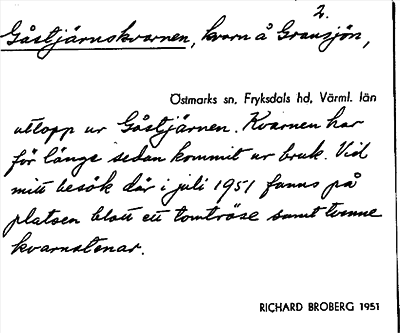 2.
Gåstjärnskvarnen, kvarn å Gransjön,
Östmarks sn, Fryksdals hd, Värml. län
utlopp ur Gåstjärnen. Kvarnen har
för länge sedan kommit ur bruk. Vid
mitt besök där i juli 1951 fanns på
platsen blott ett tomtröse samt tvenne
kvarnstenar.
RICHARD BROBERG 1951